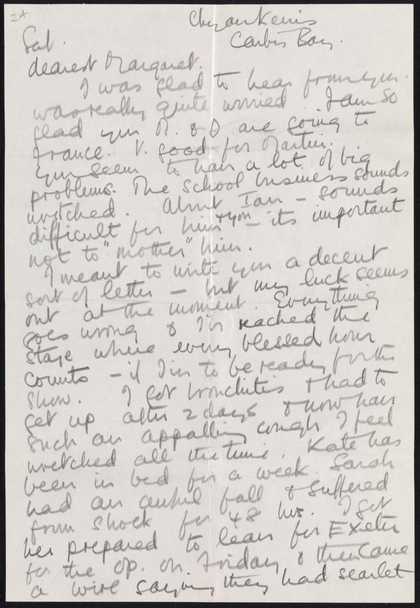 Chyankerris
Carbis Bay.
Sat.
dearest Margaret.
I was glad to hear from you.
was really quite worried. I am so
glad you M. & D are going to
France. V. good for Martin.
You seem to have a lot of big
problems. The school business sounds
wretched. About Ian – sounds
difficult for him + you – its important
not to "mother" him.
I meant to write you a decent
sort of letter – but my luck seems
out at the moment. Everything
goes wrong & I'm reached the
stage where every blessed hour
counts – if I'm to be ready for the
show. I got bronchitis & had to
get up after 2 days & now have
such an appalling cough I feel
wretched all the time. Kate has
been in bed for a week. Sarah
had an awful fall & suffered
from shock for 48 hrs. I got
her prepared to leave for Exeter
for the op. on Friday & then came
a wire saying they had scarlet